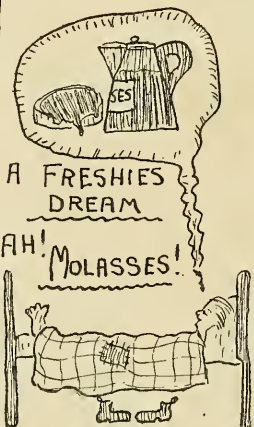 SES
A FRESHIES
DREAM
AH!
MOLASSES!